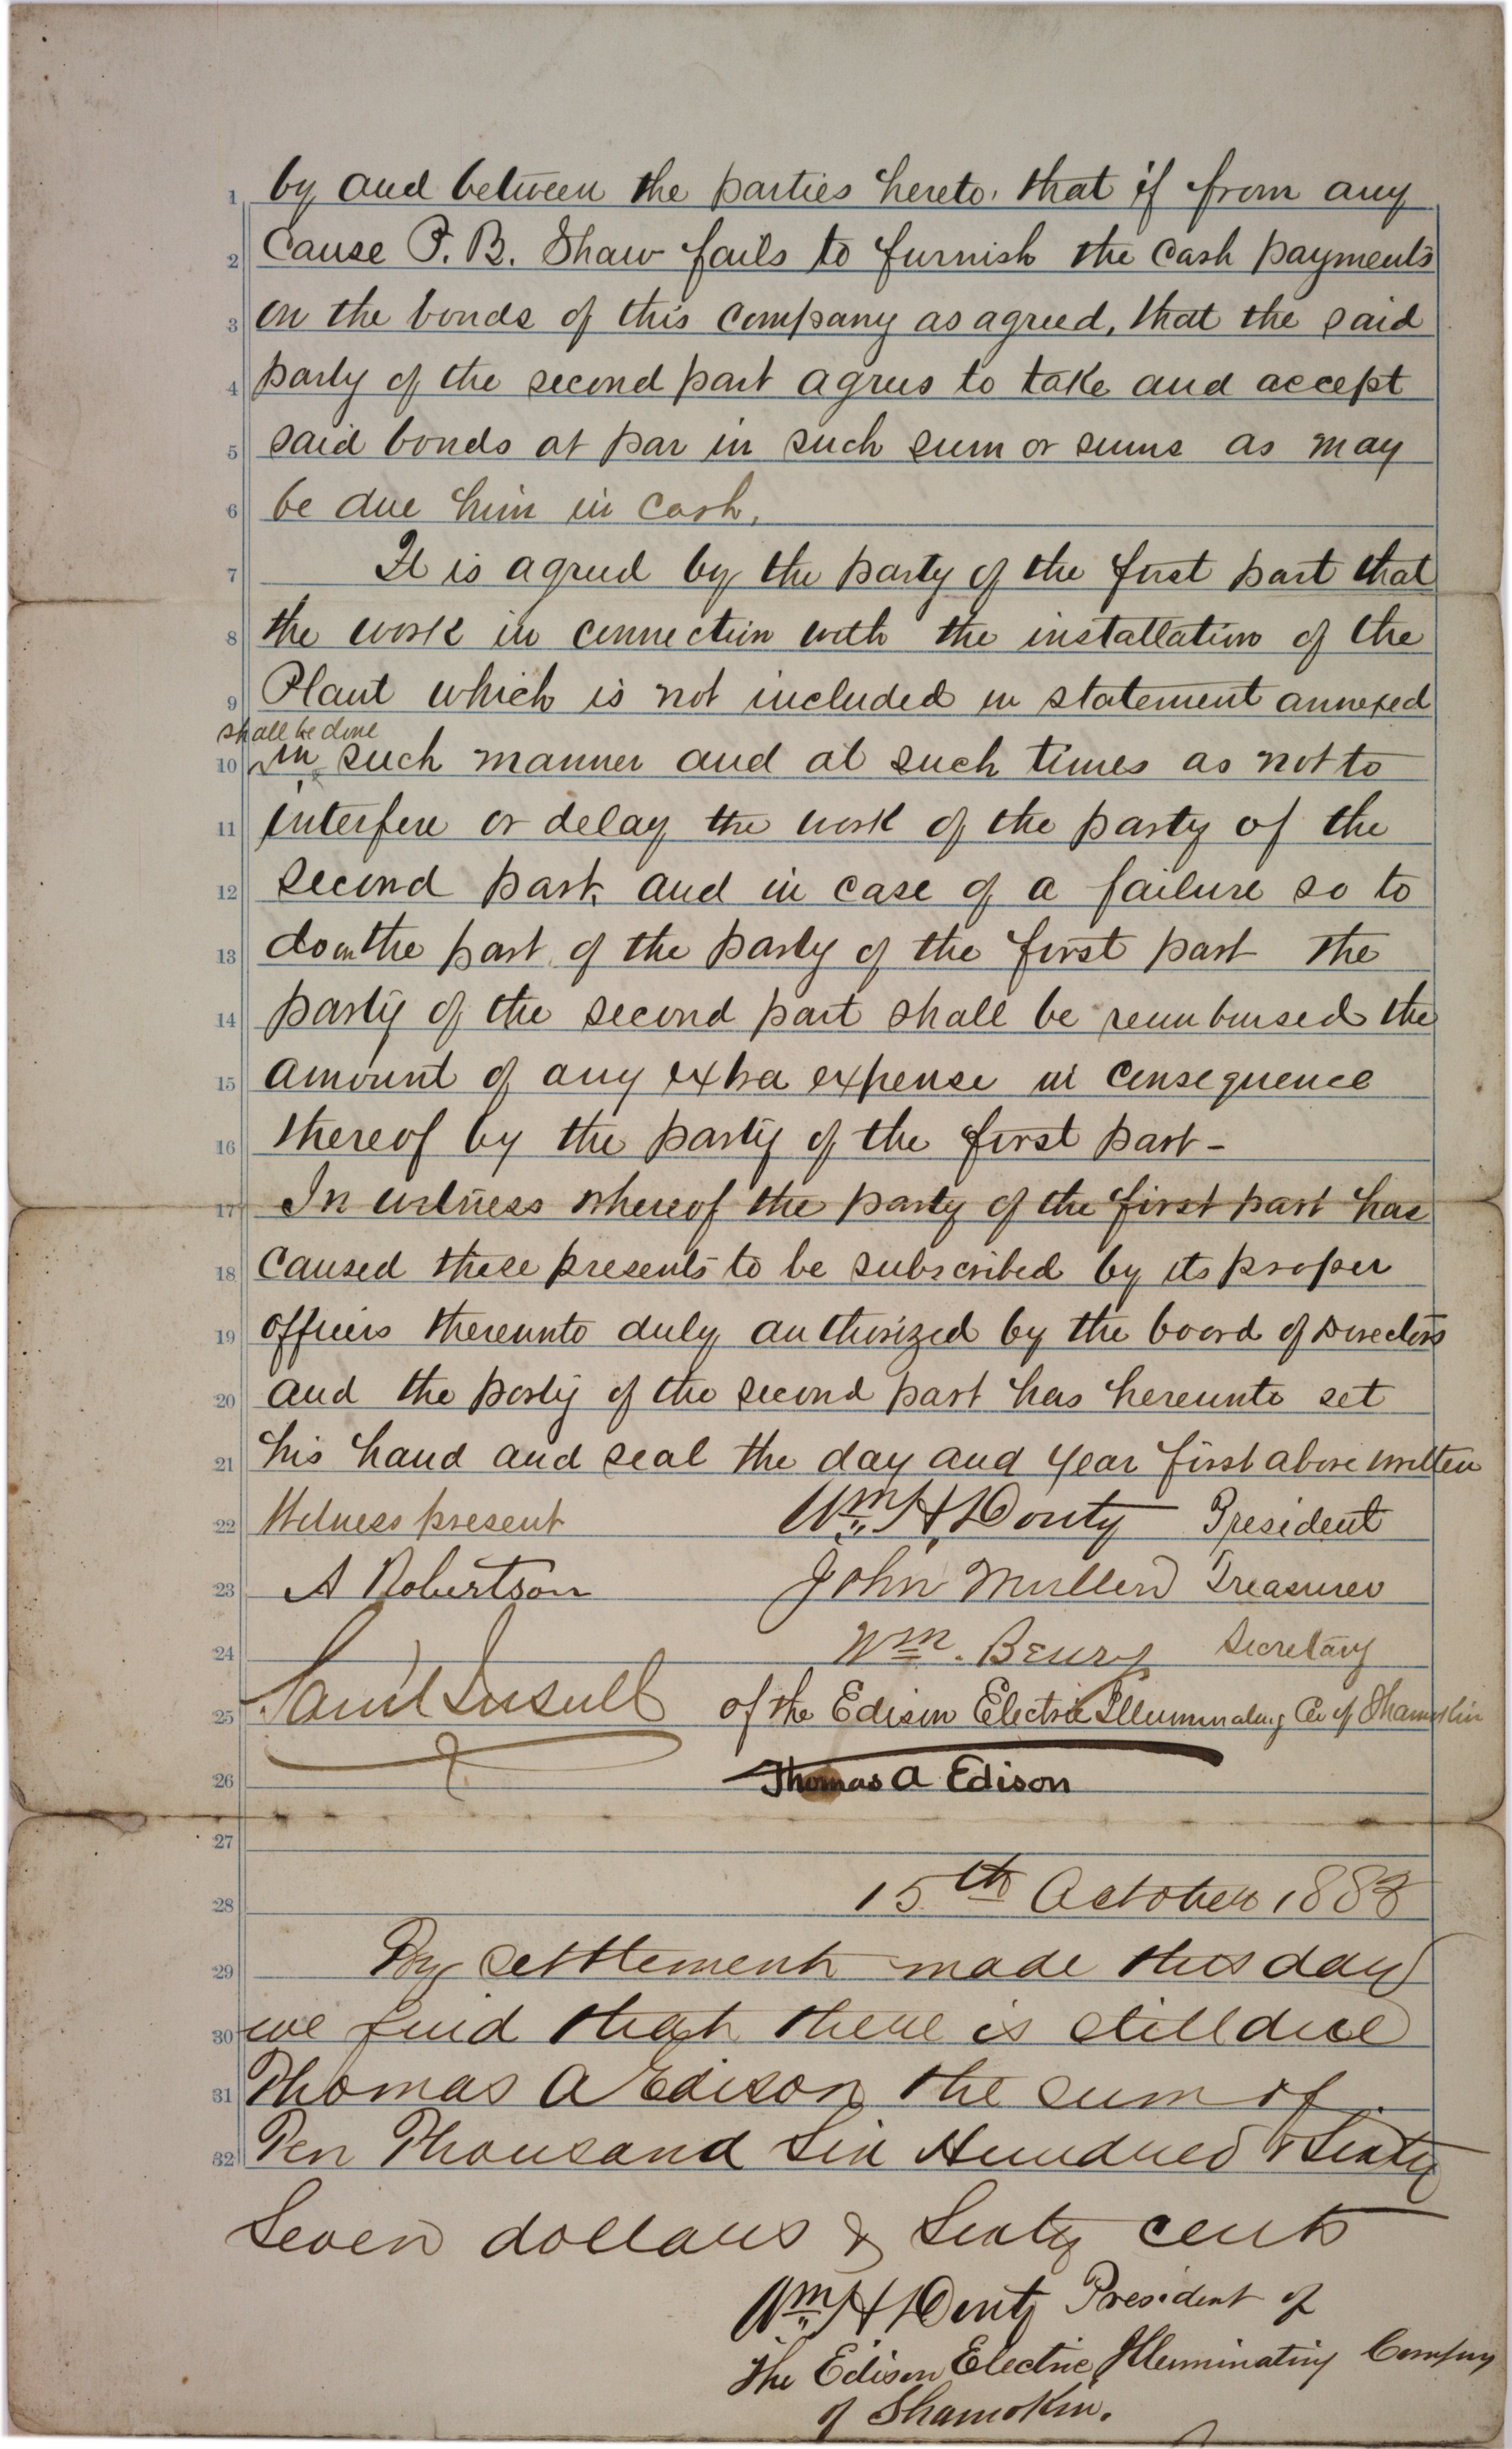 1 by and between the parties hereto, that if from any
2 Cause P. B. Shaw fails to furnish the cash payments
3 on the bonds of this company as agreed, that the said
4 party of the second part agrees to take and accept
5 said bonds at par in such sum or sums as may
6 be due him in cash,
7 It is agreed by the party of the first part that
8 the work in connection with the installation of the
9 Plant which is not included in statement annexed
shall be done
10 in such manner and at such times as not to
11 interfere or delay the work of the party of the
12 second part, and in case of a failure so to
13 do on the part of the party of the first part the
14 party of the second part shall be reimbursed the
15 amount of any extra expense in consequence
16 thereof by the party of the first part -
17 In witness whereof the party of the first part has
18 caused these presents to be subscribed by its proper
19 officers thereunto duly authorized by the board of Directors
20 and the party of the second part has hereunto set
21 his hand and seal the day and year first above written
22 Witness present Wm H Douty President
23 A Robertson John Mullen Treasurer
24 Wm. Beury Secretary
25 Saml Insull of the Edison Electric Illuminating Co of Shamokin
26 Thomas A Edison
27
28 15th October 1883
29 By settlement made this day
30 we find that there is still due
31 Thomas A Edison the sum of
32 Ten Thousand Six Hundred & Sixty
Seven dollars & Sixty cents
Wm H Douty President of
The Edison Electric Illuminating Company
of Shamokin.